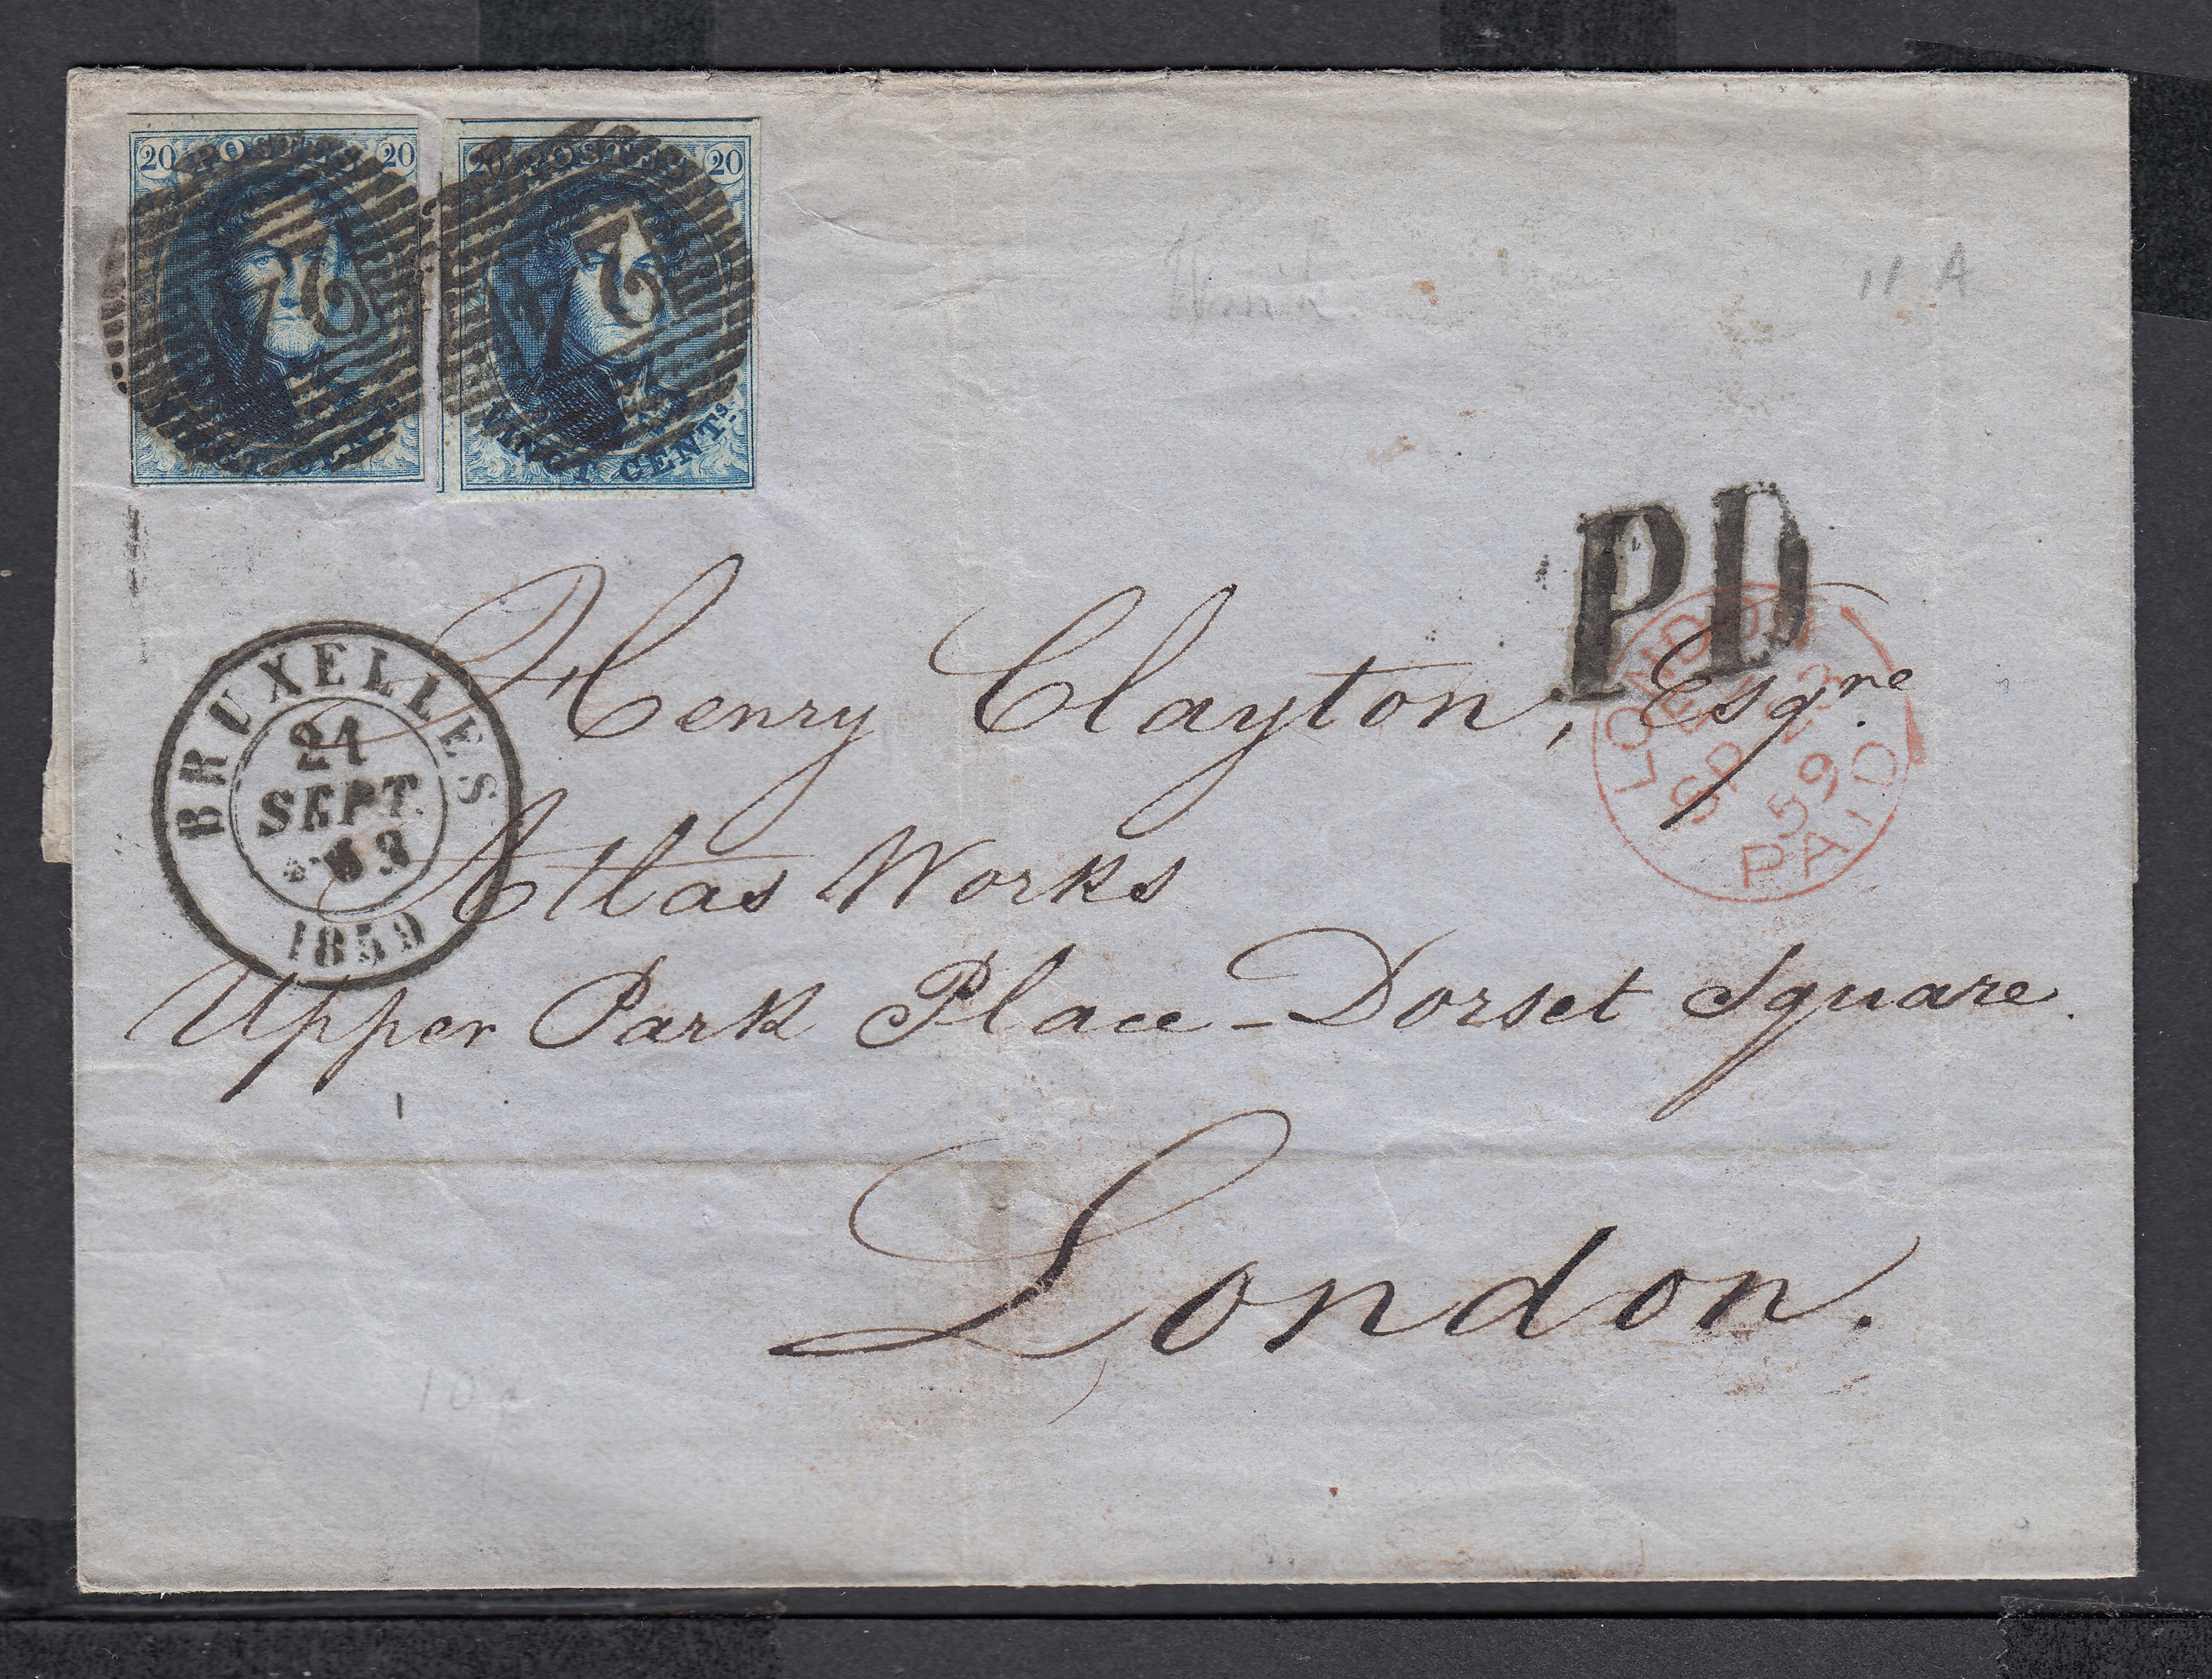 20 POSTES 20
20 POSTES 20
24
24
VINGT CENTS.
VINGT CENTS.
11 A
PD
LONDON
SP 59
PAID
BRUXELLES
21
SEPT.
1859
Henry Clayton, Esqre.
Atlas Works
Upper Park Place - Dorset Square.
London.
10